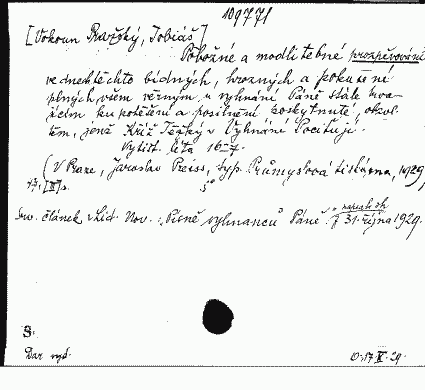 109771
[Vokoun Pražský, Tobiáš]
Pobožné a modlitebné prozpěvování
ve dnech těchto bídných, hrozných a pokušení
plných, všem věrným u vyhnání Páně stále
ku potěšení a posilnění poskytnuté,
těm, jenž Kříž Těžký v Vyhnání Pociťují.
Vytišt. léta 16-7.
(V Praze, Jaroslav Preiss, typ. Průmyslová tiskárna, 1929)
8°
Srov. článek v Lid. Nov.: "Písně vyhnanců Páně" z 31. října 1929.
S.
Dar vyd.
17 X 29.